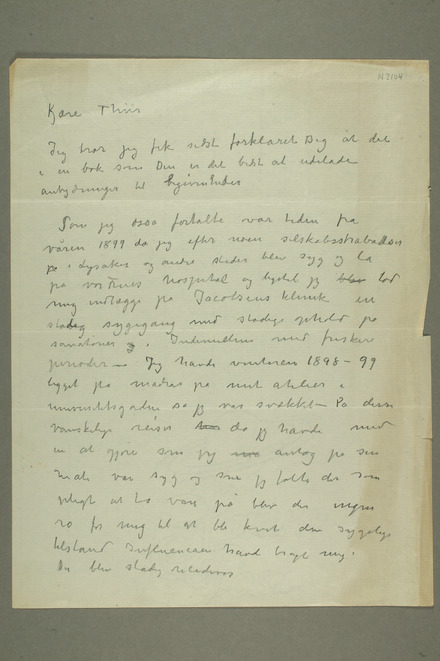 N 3104
Kære Thiis
Jeg tror jeg fik sidst forklaret Dig at det
i en bok som Din er det bedst at udelade
antydninger til
Som jeg også fortalte var tiden fra
våren 1899 da jeg efter noen selskabsstrabadser
på Lysaker og andre steder blev syg og lå
på vor Frues Hospital og tydel jeg lod
mig indlægge på Jacobsens klinik en
stadig sygegang med stadige ophold på
sanatorier og. Indimellem med friskere
perioder – Jeg havde vinteren 1898–99
ligget på madras på mit atelier i
så jeg var svækket – På disse
vanskelige reiser da jeg havde med
en at gjøre som jeg antog på sin
måde var syg og som jeg følte det som
pligt at ta vare på blev der ingen
ro for mig til at bli kvit den sygelige
tilstand Influencaen havde bragt mig.
Den blev stadig